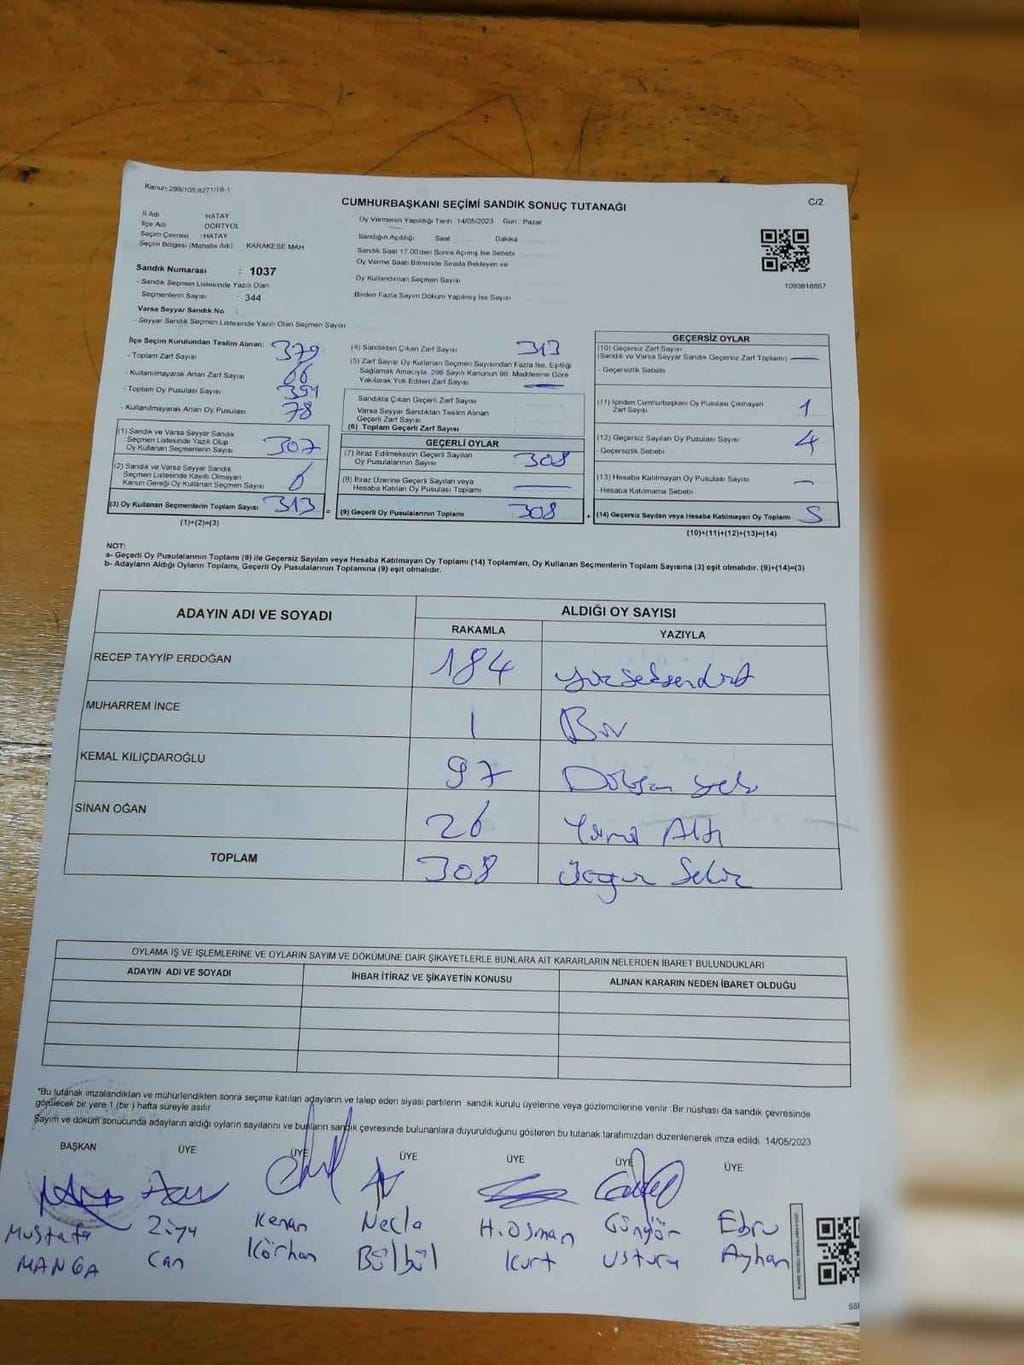 Kanun:298/105,6271/18-1
CUMHURBAŞKANI SEÇİMİ SANDIK SONUÇ TUTANAĞI
C/2
İl Adı HATAY
İlçe Adı DÖRTYOL
Seçim Çevresi : HATAY
Seçim Bölgesi (Mahalle Adı) KARAKESE MAH
Sandık Numarası : 1037
- Sandık Seçmen Listesinde Yazılı Olan
Seçmenlerin Sayısı : 344
Varsa Seyyar Sandık No
- Seyyar Sandık Seçmen Listesinde Yazılı Olan Seçmen Sayısı
Oy Vermenin Yapıldığı Tarih 14/05/2023 Gün Pazar
Sandığın Açıldığı Saat Dakika
Sandık Saat 17.00'den Sonra Açılmış İse Sebebi
Oy Verme Saati Bitiminde Sırada Bekleyen ve
Oy Kullandırılan Seçmen Sayısı
Birden Fazla Sayım Döküm Yapılmış İse Sayısı
1093818857
İlçe Seçim Kurulundan Teslim Alınan:
- Toplam Zarf Sayısı 379
- Kullanılmayarak Artan Zarf Sayısı 66
- Toplam Oy Pusulası Sayısı
- Kullanılmayarak Artan Oy Pusulası 78
(1) Sandık ve Varsa Seyyar Sandık
Seçmen Listesinde Yazılı Olup
Oy Kullanan Seçmenlerin Sayısı 307
(2) Sandık ve Varsa Seyyar Sandık
Seçmen Listesinde Kayıtlı Olmayan
Kanun Gereği Oy Kullanan Seçmen Sayısı 6
(3) Oy Kullanan Seçmenlerin Toplam Sayısı 313 =
(1)+(2)=(3)
(4) Sandıktan Çıkan Zarf Sayısı 313
(5) Zarf Sayısı Oy Kullanan Seçmen Sayısından Fazla İse, Eşitliği
Sağlamak Amacıyla, 298 Sayılı Kanunun 98. Maddesine Göre
Yakılarak Yok Edilen Zarf Sayısı —
Sandıkta Çıkan Geçerli Zarf Sayısı
Varsa Seyyar Sandıktan Teslim Alınan
Geçerli Zarf Sayısı
(6) Toplam Geçerli Zarf Sayısı
GEÇERLİ OYLAR
(7) İtiraz Edilmeksizin Geçerli Sayılan
Oy Pusulalarının Sayısı 308
(8) İtiraz Üzerine Geçerli Sayılan veya
Hesaba Katılan Oy Pusulası Toplamı —
(9) Geçerli Oy Pusulalarının Toplamı 308 +
GEÇERSİZ OYLAR
(10) Geçersiz Zarf Sayısı
(Sandık ve Varsa Seyyar Sandık Geçersiz Zarf Toplamı) —
- Geçersizlik Sebebi
(11) İçinden Cumhurbaşkanı Oy Pusulası Çıkmayan
Zarf Sayısı 1
(12) Geçersiz Sayılan Oy Pusulası Sayısı 4
- Geçersizlik Sebebi
(13) Hesaba Katılmayan Oy Pusulası Sayısı —
- Hesaba Katılmama Sebebi
(14) Geçersiz Sayılan veya Hesaba Katılmayan Oy Toplamı 5
(10)+(11)+(12)+(13)=(14)
NOT:
a- Geçerli Oy Pusulalarının Toplamı (9) ile Geçersiz Sayılan veya Hesaba Katılmayan Oy Toplamı (14) Toplamları, Oy Kullanan Seçmenlerin Toplam Sayısına (3) eşit olmalıdır. (9)+(14)=(3)
b- Adayların Aldığı Oyların Toplamı, Geçerli Oy Pusulalarının Toplamına (9) eşit olmalıdır.
ADAYIN ADI VE SOYADI ALDIĞI OY SAYISI
RAKAMLA YAZIYLA
RECEP TAYYİP ERDOĞAN 184 yüzseksendört
MUHARREM İNCE 1 Bir
KEMAL KILIÇDAROĞLU 97 Doksan yedi
SİNAN OĞAN 26 Yirmi Altı
TOPLAM 308 üçyüz Sekiz
OYLAMA İŞ VE İŞLEMLERİNE VE OYLARIN SAYIM VE DÖKÜMÜNE DAİR ŞİKAYETLERLE BUNLARA AİT KARARLARIN NELERDEN İBARET BULUNDUKLARI
ADAYIN ADI VE SOYADI İHBAR İTİRAZ VE ŞİKAYETİN KONUSU ALINAN KARARIN NEDEN İBARET OLDUĞU
*Bu tutanak imzalandıktan ve mühürlendikten sonra seçime katılan adayların ve talep eden siyasi partilerin sandık kurulu üyelerine veya gözlemcilerine verilir. Bir nüshası da sandık çevresinde
görülecek bir yere 1 (bir) hafta süreyle asılır
Sayım ve döküm sonucunda adayların aldığı oyların sayılarını ve bunların sandık çevresinde bulunanlara duyurulduğunu gösteren bu tutanak tarafımızdan düzenlenerek imza edildi. 14/05/2023
BAŞKAN ÜYE ÜYE ÜYE ÜYE ÜYE ÜYE
Mustafa Ziya Kenan Necla H.Osman Güngör Ebru
MANGA Can Körhan Bülbül Kurt Ustura Ayhan